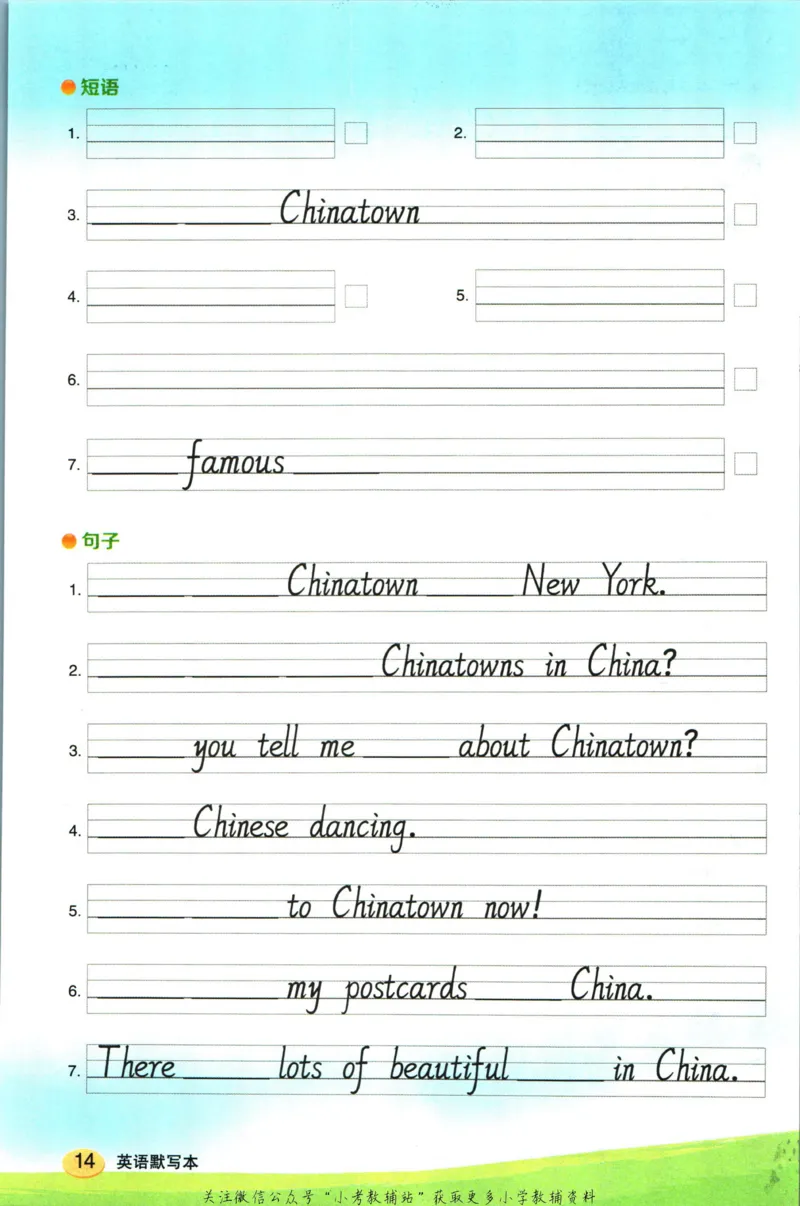 短语
1. 2.
3. ______ ______ Chinatown
4. 5.
6.
7. ______ famous ______
句子
1. ______ ______ Chinatown ______ New York.
2. ______ ______ ______ Chinatowns in China?
3. ______ you tell me ______ about Chinatown?
4. ______ Chinese dancing.
5. ______ ______ to Chinatown now!
6. ______ ______ my postcards ______ China.
7. There ______ lots of beautiful ______ in China.
14 英语默写本
关注微信公众号“小考教辅站”获取更多小学教辅资料